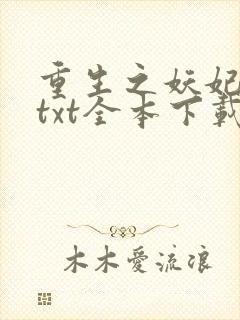 重生之妖妃
txt全本下載
木木愛流浪